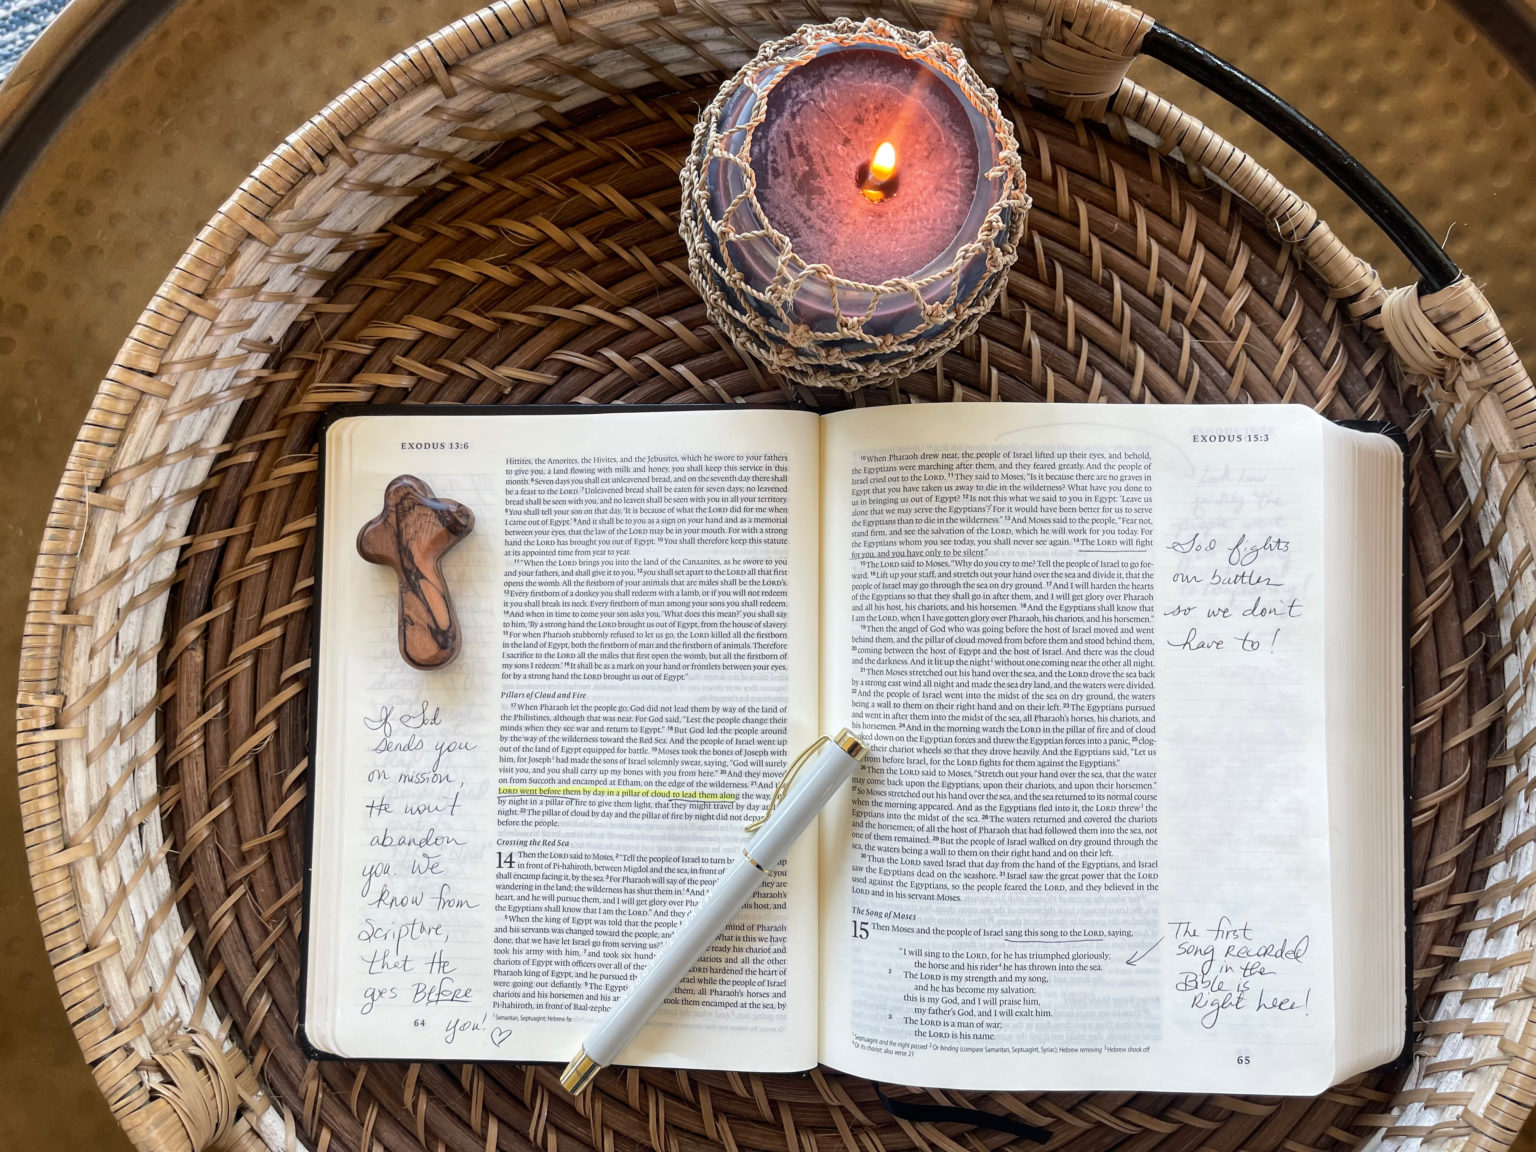 EXODUS 13:6
Hittites, the Amorites, the Hivites, and the Jebusites, which he swore to your fathers
to give you, a land flowing with milk and honey, you shall keep this service in this
month. 6 Seven days you shall eat unleavened bread, and on the seventh day there shall
be a feast to the LORD. 7 Unleavened bread shall be eaten for seven days; no leavened
bread shall be seen with you, and no leaven shall be seen with you in all your territory.
8 You shall tell your son on that day, 'It is because of what the LORD did for me when
I came out of Egypt.' 9 And it shall be to you as a sign on your hand and as a memorial
between your eyes, that the law of the LORD may be in your mouth. For with a strong
hand the LORD has brought you out of Egypt. 10 You shall therefore keep this statute
at its appointed time from year to year.
11 "When the LORD brings you into the land of the Canaanites, as he swore to you
and your fathers, and shall give it to you, 12 you shall set apart to the LORD all that first
opens the womb. All the firstborn of your animals that are males shall be the LORD's.
13 Every firstborn of a donkey you shall redeem with a lamb, or if you will not redeem
it you shall break its neck. Every firstborn of man among your sons you shall redeem.
14 And when in time to come your son asks you, 'What does this mean?' you shall say
to him, 'By a strong hand the LORD brought us out of Egypt, from the house of slavery.
15 For when Pharaoh stubbornly refused to let us go, the LORD killed all the firstborn
in the land of Egypt, both the firstborn of man and the firstborn of animals. Therefore
I sacrifice to the LORD all the males that first open the womb, but all the firstborn of
my sons I redeem.' 16 It shall be as a mark on your hand or frontlets between your eyes,
for by a strong hand the LORD brought us out of Egypt."
Pillars of Cloud and Fire
17 When Pharaoh let the people go, God did not lead them by way of the land of
the Philistines, although that was near. For God said, "Lest the people change their
minds when they see war and return to Egypt." 18 But God led the people around
by the way of the wilderness toward the Red Sea. And the people of Israel went up
out of the land of Egypt equipped for battle. 19 Moses took the bones of Joseph with
him, for Joseph had made the sons of Israel solemnly swear, saying, "God will surely
visit you, and you shall carry up my bones with you from here." 20 And they moved
on from Succoth and encamped at Etham, on the edge of the wilderness. 21 And
LORD went before them by day in a pillar of cloud to lead them along the way,
by night in a pillar of fire to give them light, that they might travel by day
night. 22 The pillar of cloud by day and the pillar of fire by night did not
before the people.
Crossing the Red Sea
14 Then the LORD said to Moses, 2 "Tell the people of Israel to turn
in front of Pi-hahiroth, between Migdol and the sea, in front of you
shall encamp facing it, by the sea. 3 For Pharaoh will say of the They are
wandering in the land; the wilderness has shut them in.' 4 And Pharaoh's
heart, and he will pursue them, and I will get glory over his host, and
the Egyptians shall know that I am the LORD." And they
5 When the king of Egypt was told that the people mind of Pharaoh
and his servants was changed toward the people, and What is this we have
done, that we have let Israel go from serving us?" ready his chariot and
took his army with him, 7 and took six all the other
chariots of Egypt with officers over all of LORD hardened the heart of
Pharaoh king of Egypt, and he pursued the while the people of Israel
were going out defiantly. 9 The them, all Pharaoh's horses and
chariots and his horsemen and his took them encamped at the sea, by
Pi-hahiroth, in front of Baal-zephon
1 Samaritan, Septuagint; Hebrew he
64
If God
sends you
on mission,
He won't
abandon
you. We
know from
Scripture,
that He
goes Before
you! ♡
EXODUS 15:3
10 When Pharaoh drew near, the people of Israel lifted up their eyes, and behold,
the Egyptians were marching after them, and they feared greatly. And the people of
Israel cried out to the LORD. 11 They said to Moses, "Is it because there are no graves in
Egypt that you have taken us away to die in the wilderness? What have you done to
us in bringing us out of Egypt? 12 Is not this what we said to you in Egypt: 'Leave us
alone that we may serve the Egyptians'? For it would have been better for us to serve
the Egyptians than to die in the wilderness." 13 And Moses said to the people, "Fear not,
stand firm, and see the salvation of the LORD, which he will work for you today. For
the Egyptians whom you see today, you shall never see again. 14 The LORD will fight
for you, and you have only to be silent."
15 The LORD said to Moses, "Why do you cry to me? Tell the people of Israel to go for-
ward. 16 Lift up your staff, and stretch out your hand over the sea and divide it, that the
people of Israel may go through the sea on dry ground. 17 And I will harden the hearts
of the Egyptians so that they shall go in after them, and I will get glory over Pharaoh
and all his host, his chariots, and his horsemen. 18 And the Egyptians shall know that
I am the LORD, when I have gotten glory over Pharaoh, his chariots, and his horsemen."
19 Then the angel of God who was going before the host of Israel moved and went
behind them, and the pillar of cloud moved from before them and stood behind them,
20 coming between the host of Egypt and the host of Israel. And there was the cloud
and the darkness. And it lit up the night 1 without one coming near the other all night.
21 Then Moses stretched out his hand over the sea, and the LORD drove the sea back
by a strong east wind all night and made the sea dry land, and the waters were divided.
22 And the people of Israel went into the midst of the sea on dry ground, the waters
being a wall to them on their right hand and on their left. 23 The Egyptians pursued
and went in after them into the midst of the sea, all Pharaoh's horses, his chariots, and
his horsemen. 24 And in the morning watch the LORD in the pillar of fire and of cloud
looked down on the Egyptian forces and threw the Egyptian forces into a panic, 25 clog-
their chariot wheels so that they drove heavily. And the Egyptians said, "Let us
from before Israel, for the LORD fights for them against the Egyptians."
26 Then the LORD said to Moses, "Stretch out your hand over the sea, that the water
may come back upon the Egyptians, upon their chariots, and upon their horsemen."
27 So Moses stretched out his hand over the sea, and the sea returned to its normal course
when the morning appeared. And as the Egyptians fled into it, the LORD threw 3 the
Egyptians into the midst of the sea. 28 The waters returned and covered the chariots
and the horsemen; of all the host of Pharaoh that had followed them into the sea, not
one of them remained. 29 But the people of Israel walked on dry ground through the
sea, the waters being a wall to them on their right hand and on their left.
30 Thus the LORD saved Israel that day from the hand of the Egyptians, and Israel
saw the Egyptians dead on the seashore. 31 Israel saw the great power that the LORD
used against the Egyptians, so the people feared the LORD, and they believed in the
LORD and in his servant Moses.
The Song of Moses
15 Then Moses and the people of Israel sang this song to the LORD, saying,
"I will sing to the LORD, for he has triumphed gloriously;
the horse and his rider 4 he has thrown into the sea.
2 The LORD is my strength and my song,
and he has become my salvation;
this is my God, and I will praise him,
my father's God, and I will exalt him.
3 The LORD is a man of war;
the LORD is his name.
1 Septuagint and the night passed 2 Or binding (compare Samaritan, Septuagint, Syriac); Hebrew removing 3 Hebrew shook off
4 Or its chariot; also verse 21
65
God fights
our battles
so we don't
have to!
The first
song Recorded
in the
Bible is
Right here!